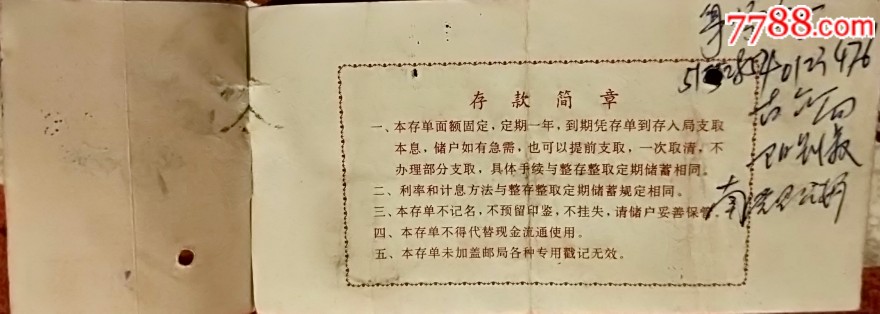 7788.com
存款简章
一、本存单面额固定，定期一年，到期凭存单到存入局支取
本息，储户如有急需，也可以提前支取，一次取清，不
办理部分支取，具体手续与整存整取定期储蓄相同。
二、利率和计息方法与整存整取定期储蓄规定相同。
三、本存单不记名，不预留印鉴，不挂失，请储户妥善保管。
四、本存单不得代替现金流通使用。
五、本存单未加盖邮局各种专用戳记无效。